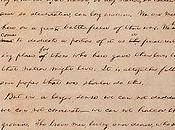 so dedicated, can long endure. We are met
here on a great battle-field of that war. We
come
to dedicate a portion of it as the final
ing place of those who here gave their lives
that nation might live. It is altogether
and proper that we should do this.
But in a larger sense we can not
we can not consecrate we can not hallow
ground. The brave men, living and dead, who